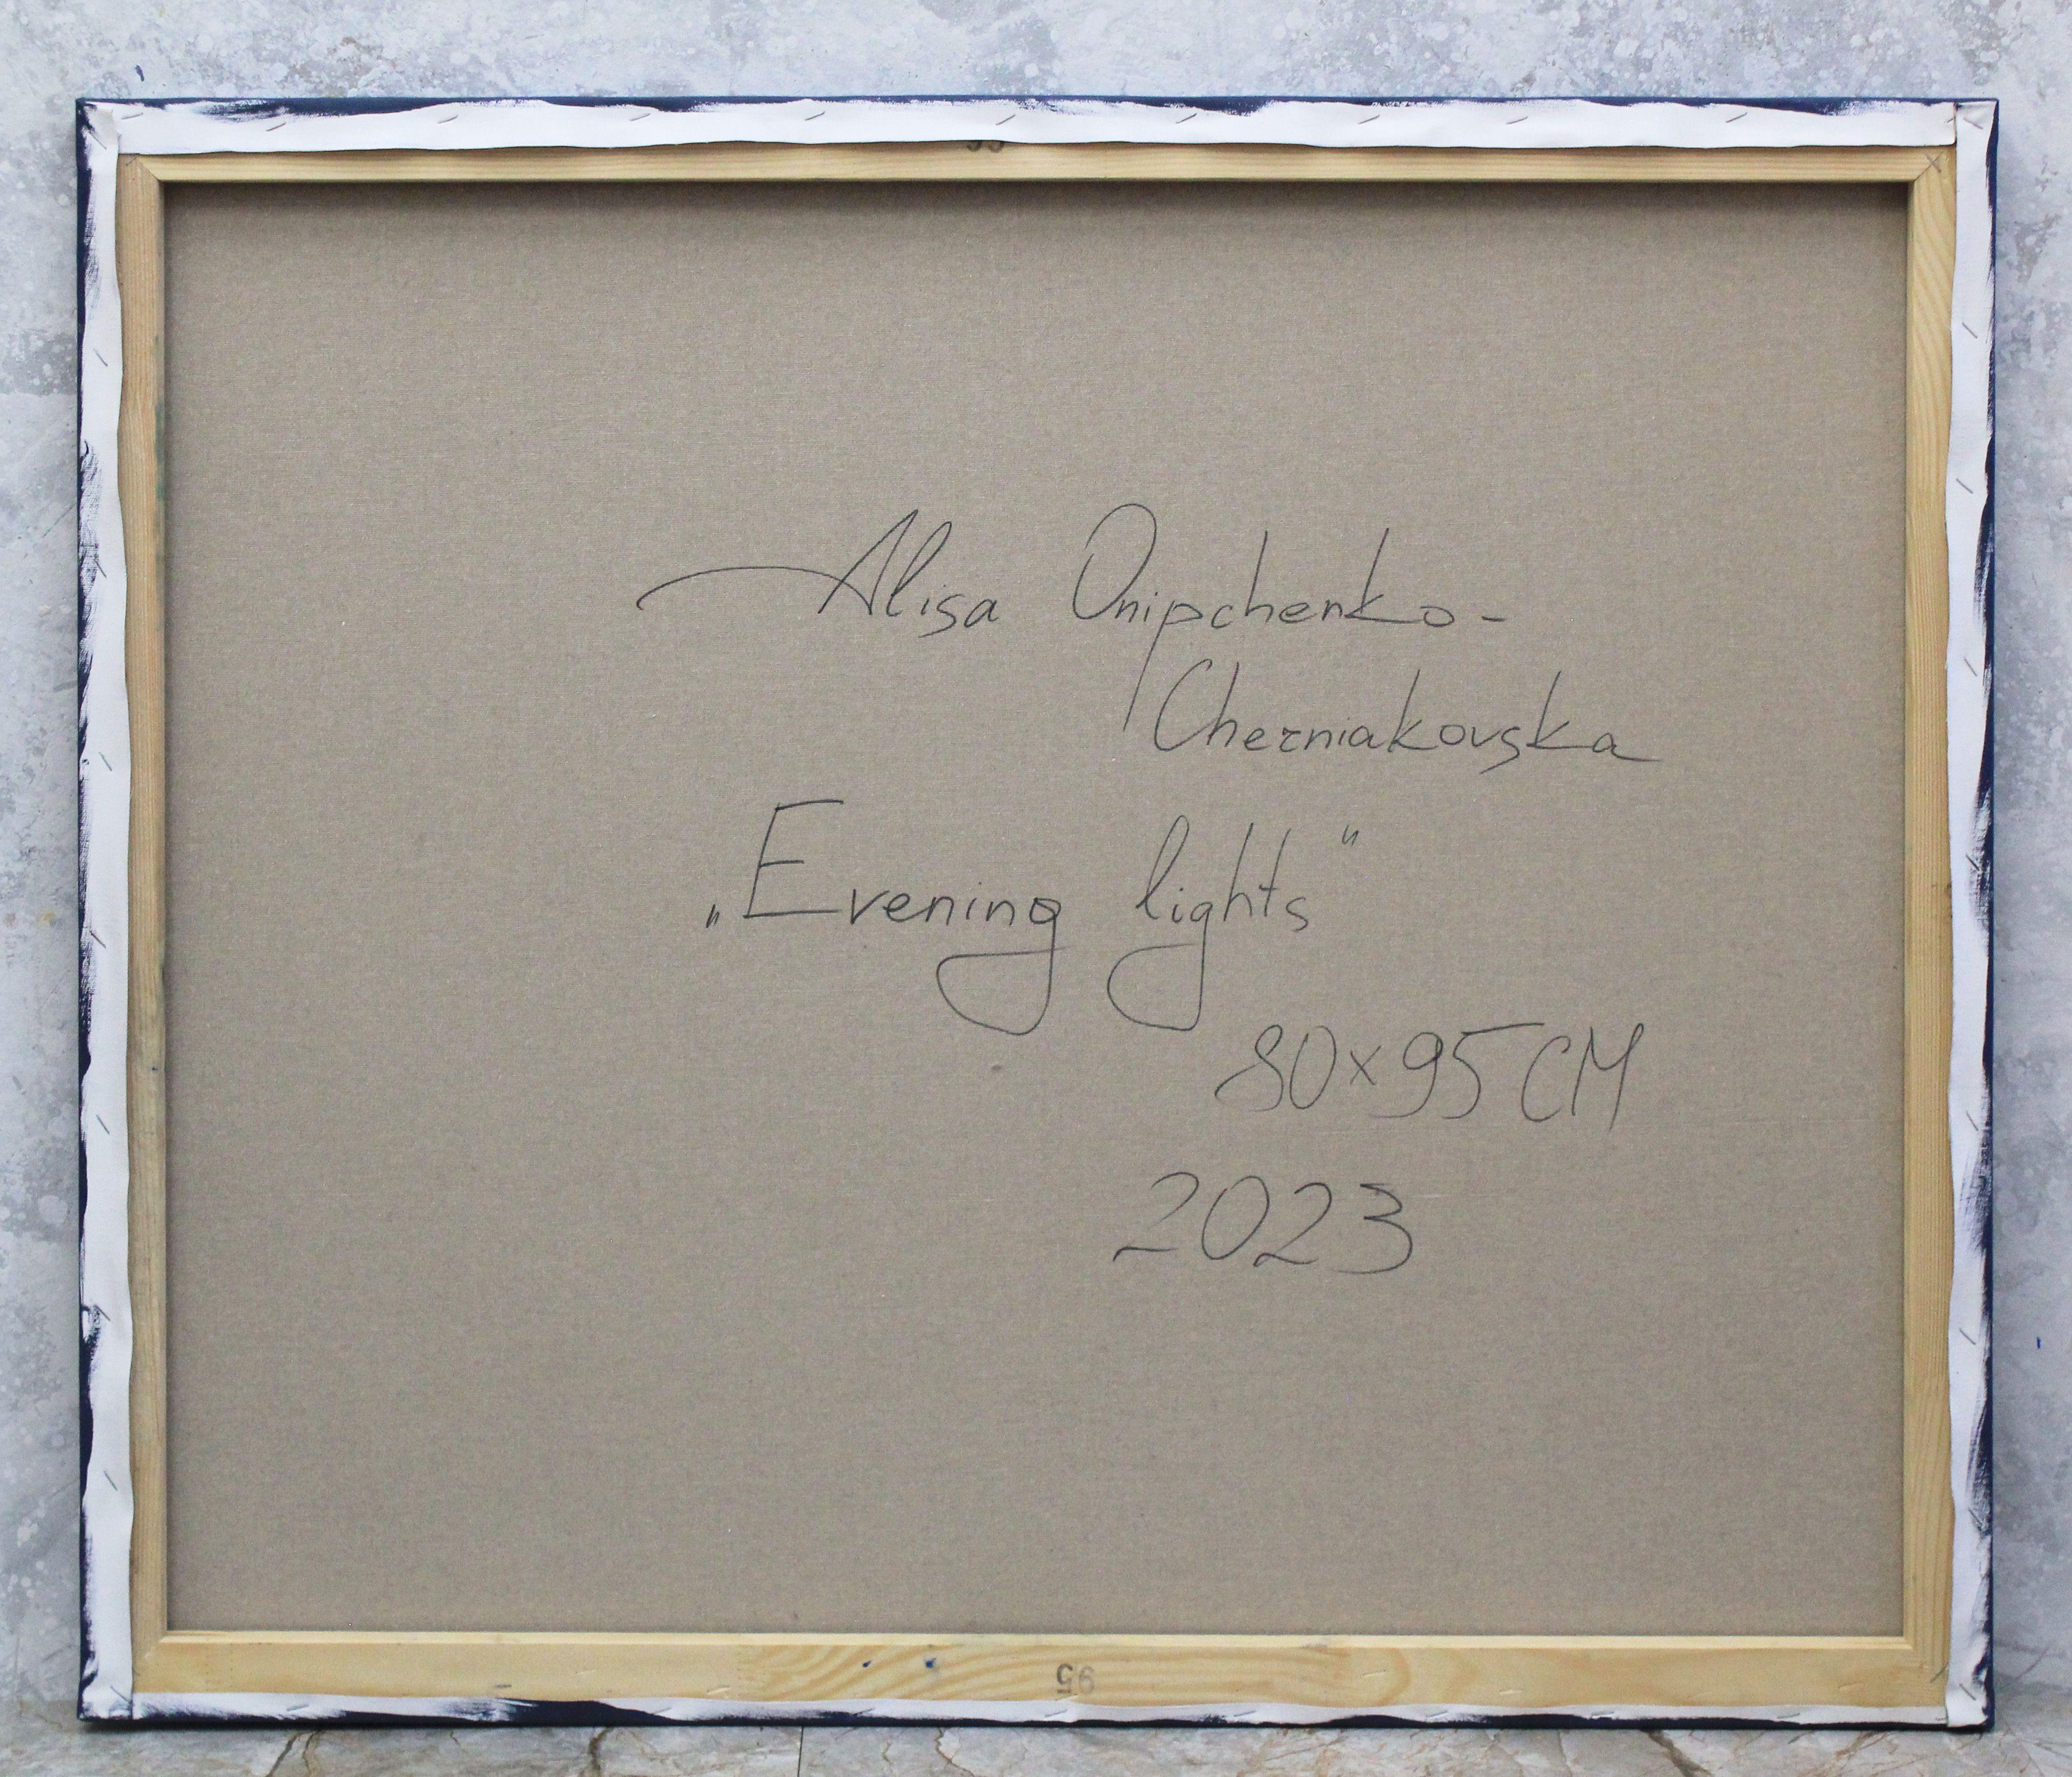 Alisa Onipchenko-
Cherniakovska
„Evening lights"
80x95 CM
2023
95